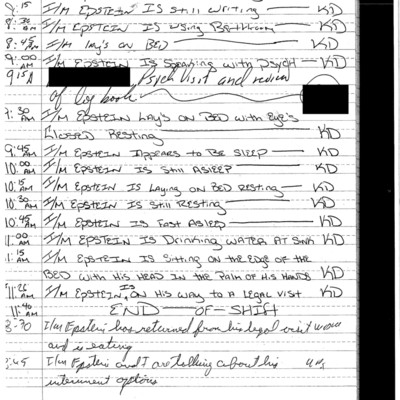 8:15 AM I/M EPSTEIN IS Still writing — KD
8:30 AM I/M EPSTEIN IS Using Bathroom — KD
8:45 AM I/M lay's on BED — KD
9:00 AM I/M EPSTEIN IS Speaking with Psych — KD
9:15 A Psych visit and review
of log book
9:30 AM I/M EPSTEIN Lay's on BED with Eye's
Closed Resting — KD
9:45 AM I/M EPSTEIN Appears to Be SLEEP — KD
10:00 AM I/M EPSTEIN IS Still ASLEEP — KD
10:15 AM I/M EPSTEIN IS Laying on BED Resting — KD
10:30 AM I/M EPSTEIN IS Still Resting — KD
10:45 AM I/M EPSTEIN IS FAST ASLEEP — KD
11:00 AM I/M EPSTEIN IS Drinking WATER AT SINK KD
11:15 AM I/M EPSTEIN IS Sitting on the EDGE of the
BED with His HEAD IN the PALM of His HANDS KD
11:25 AM I/M EPSTEIN IS on His WAY to A LEGAL VISIT KD
11:40 AM END — OF - SHIFT
I/m Epstein has returned from his legal visit
and is eating
I/m Epstein and I are talking about his
interment options